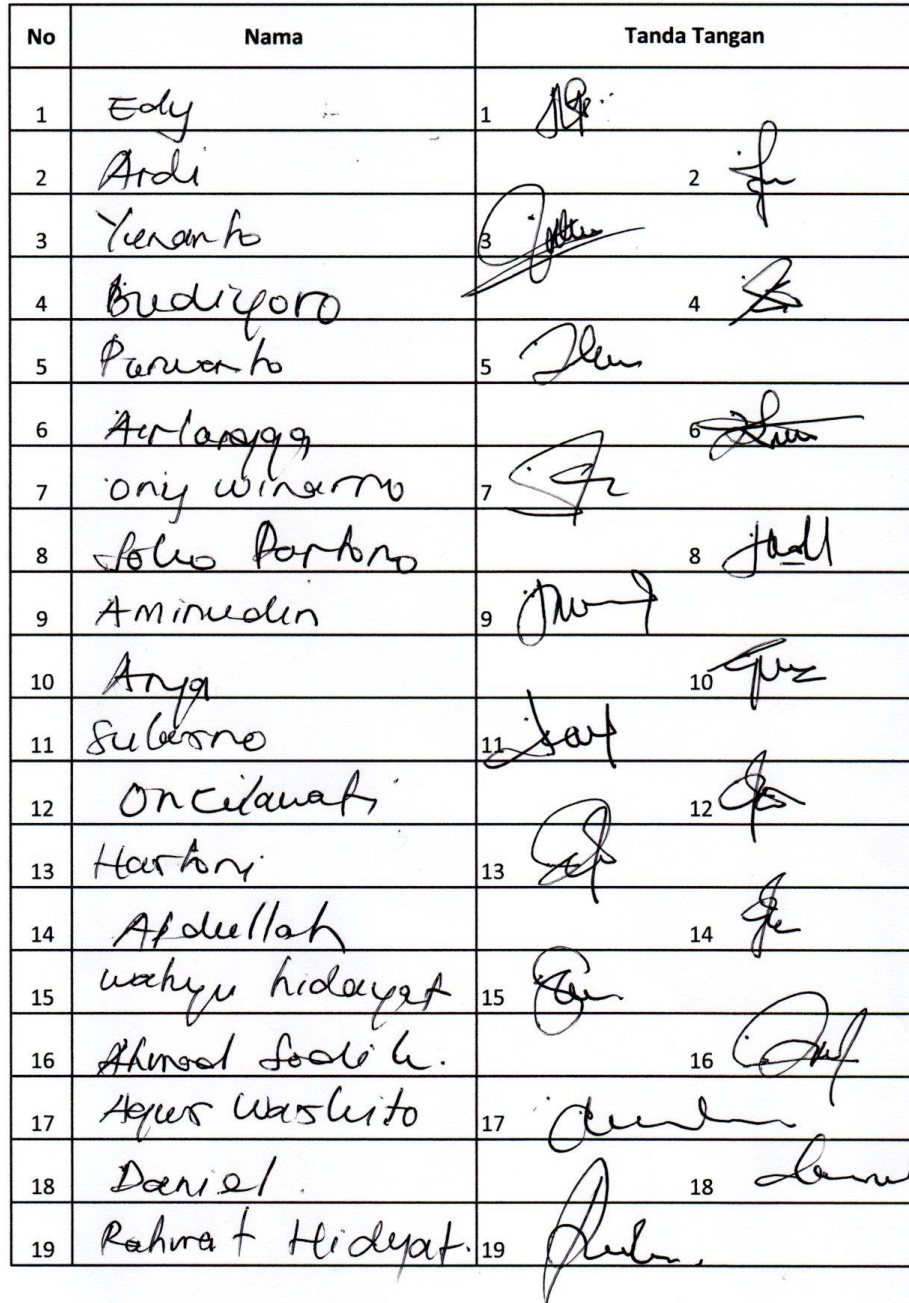 No Nama Tanda Tangan
1 Edy 1
2 Ardi 2
3 Yunanto 3
4 Budiyono 4
5 Purwanto 5
6 Airlangga 6
7 Oniy Winarno 7
8 Joko Partono 8
9 Aminudin 9
10 Arya 10
11 11
12 Oncilawati 12
13 Hartoni 13
14 Abdullah 14
15 Wahyu hidayat 15
16 Ahmad Sodik. 16
17 Agus Waskito 17
18 Daniel. 18
19 Rahmat Hidyat. 19